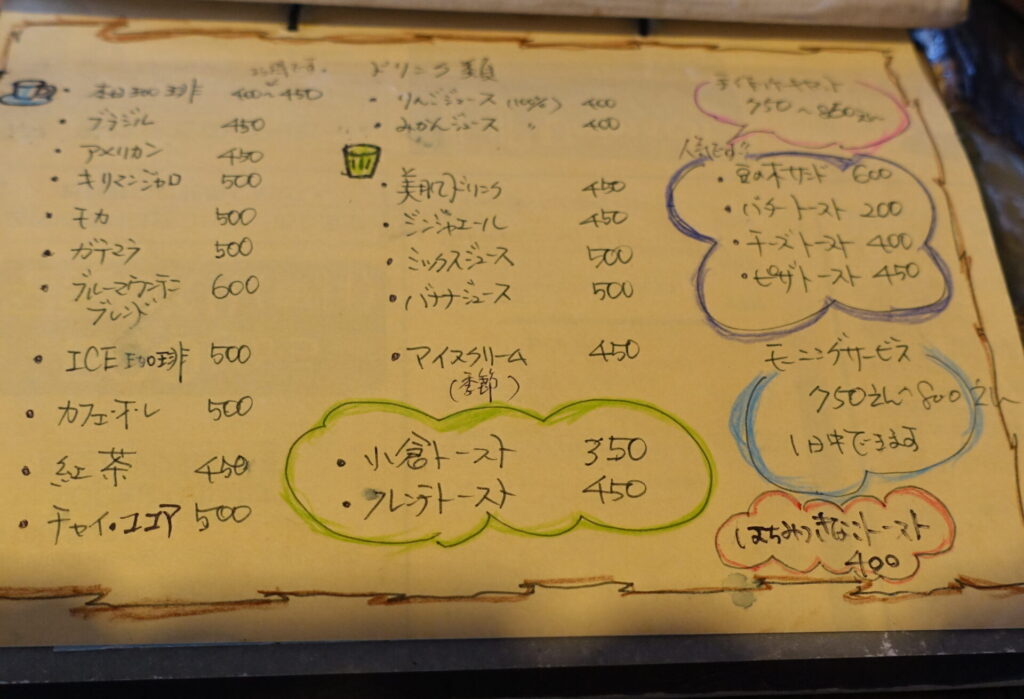 本日の珈琲 400〜450
・ブラジル 450
・アメリカン 450
・キリマンジャロ 500
・モカ 500
・ガテマラ 500
・ブルーマウンテン 600
ブレンド
・ICE珈琲 500
・カフェ・オ・レ 500
・紅茶 450
・チャイ・ココア 500
ドリンク類
・りんごジュース (100%) 400
・みかんジュース 〃 400
・美肌ドリンク 450
・ジンジャエール 450
・ミックスジュース 500
・バナナジュース 500
・アイスクリーム 450
(季節)
・小倉トースト 350
・フレンチトースト 450
750〜850えん
人気です!!
・豆の木サンド 600
・バタートースト 200
・チーズトースト 400
・ピザトースト 450
モーニングサービス
750えん〜800えん
1日中できます
はちみつきなこトースト
400